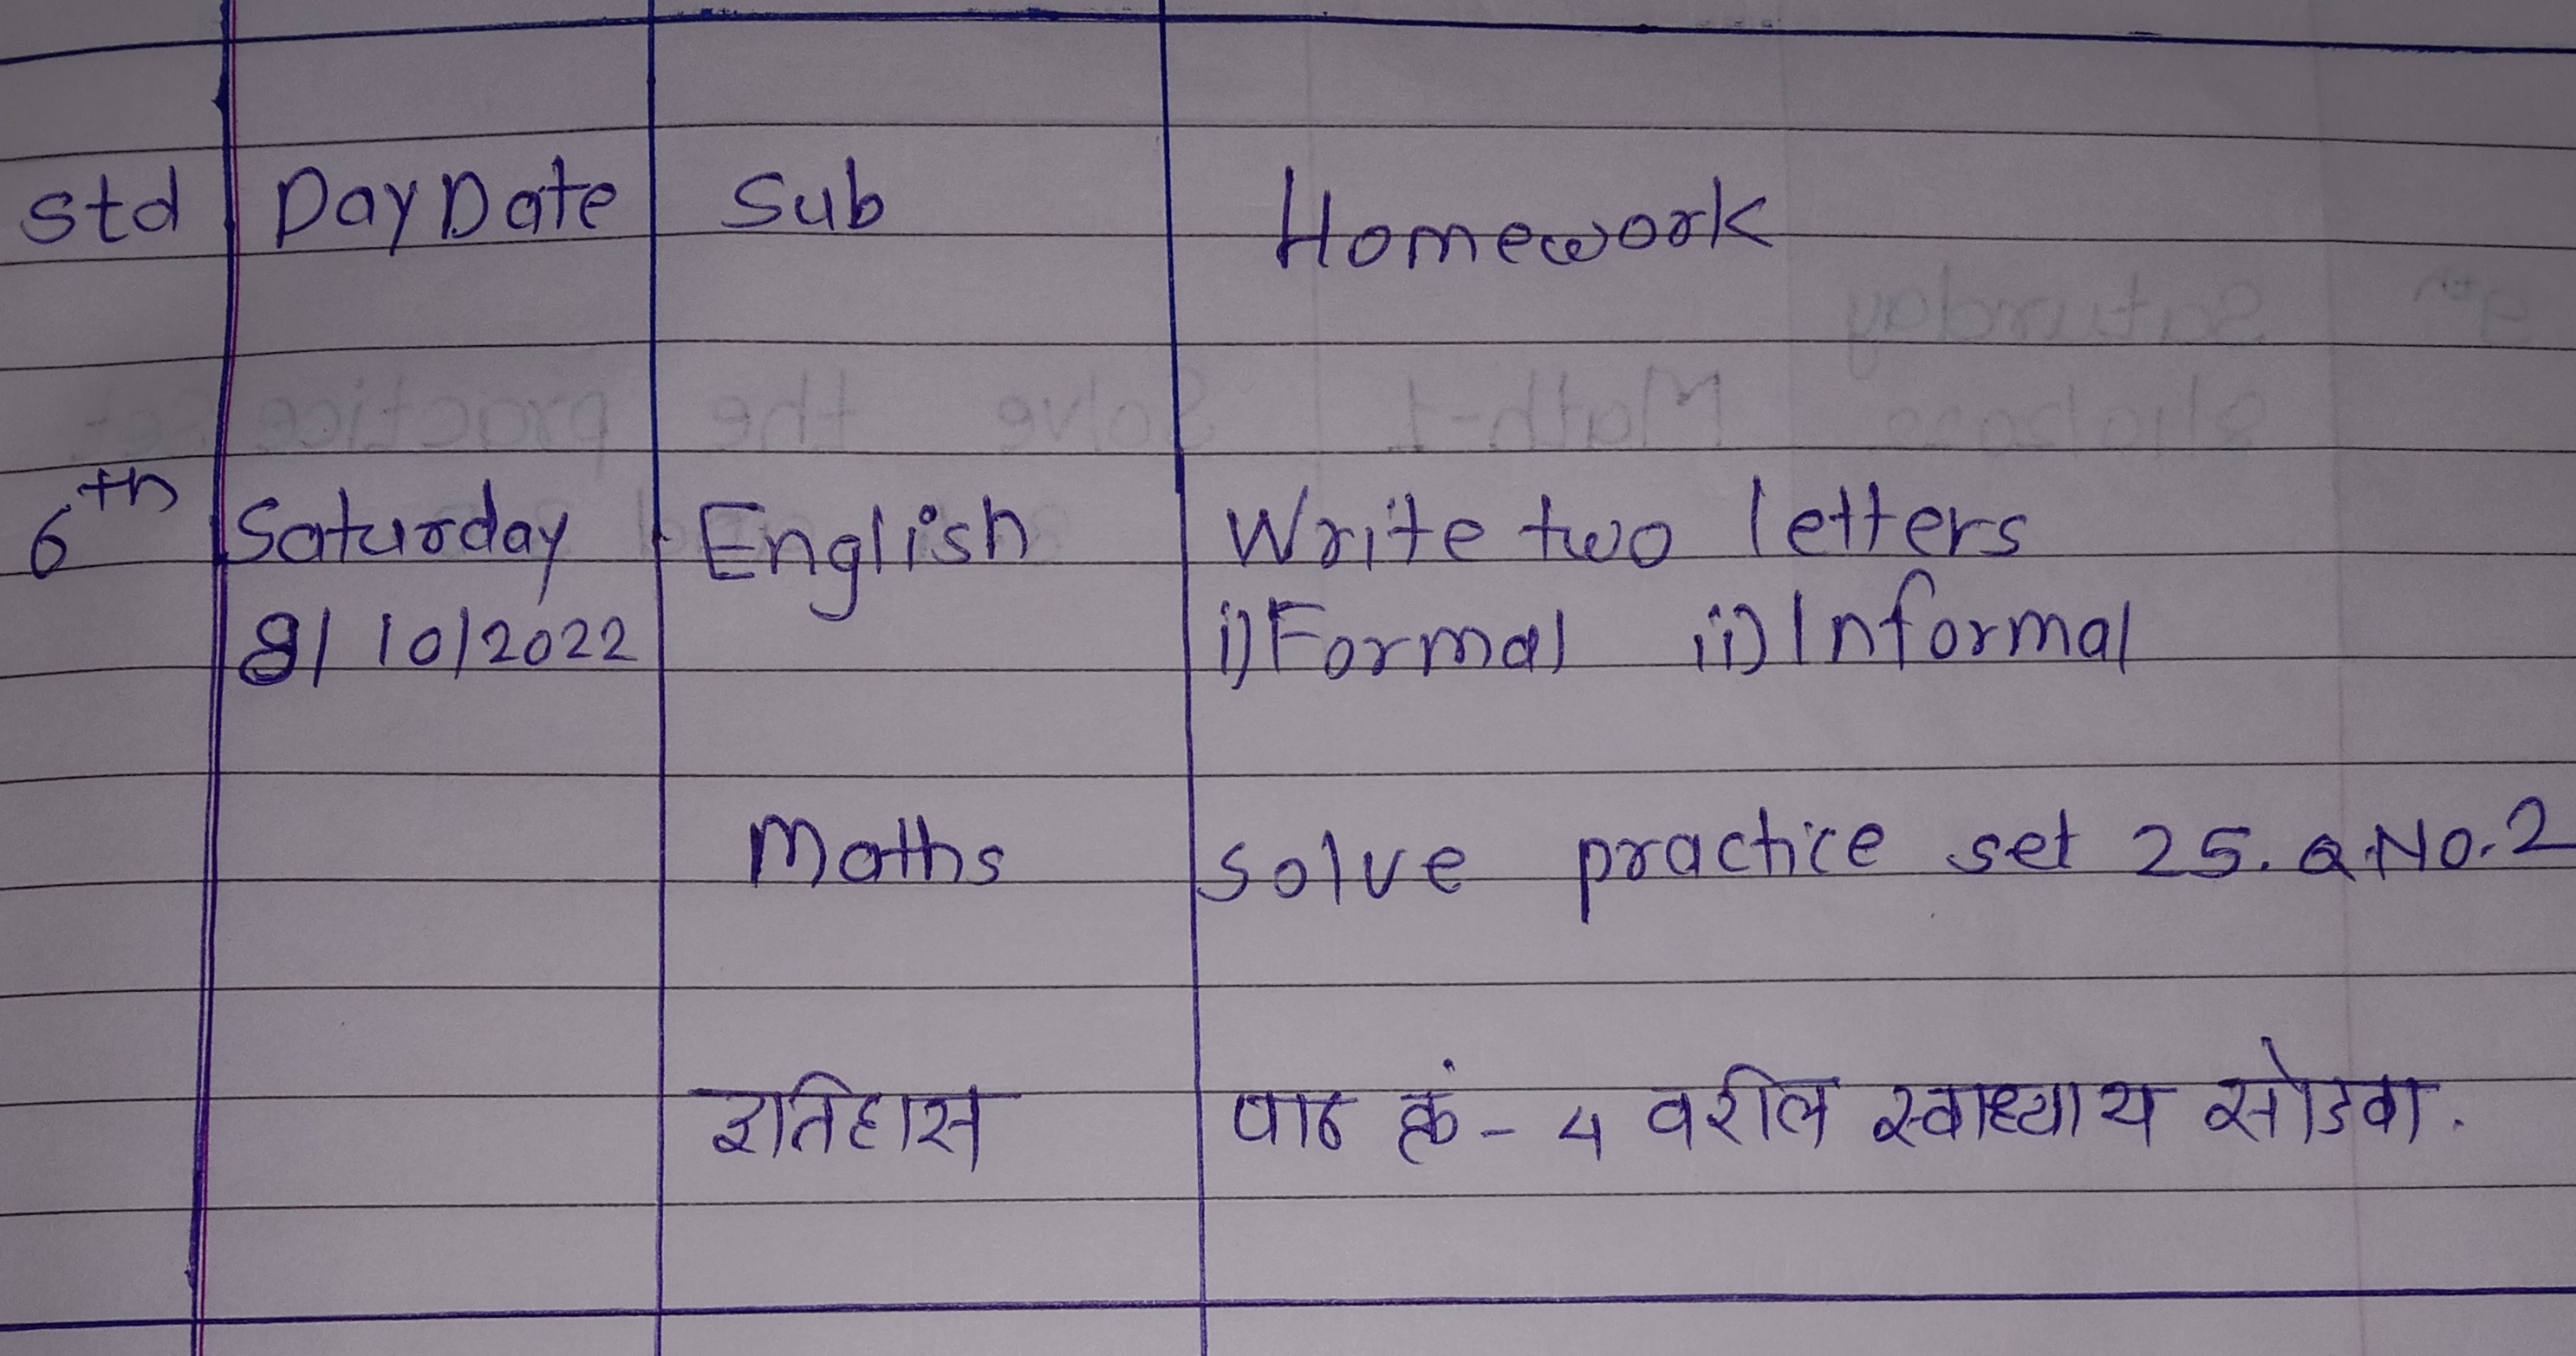 Std Day Date Sub Homework
6th Saturday English Write two letters
8/10/2022 i) Formal ii) Informal
Maths solve practice set 25. Q.No.2
इतिहास पाठ क्रं - 4 वरील स्वाध्याय सोडवा.